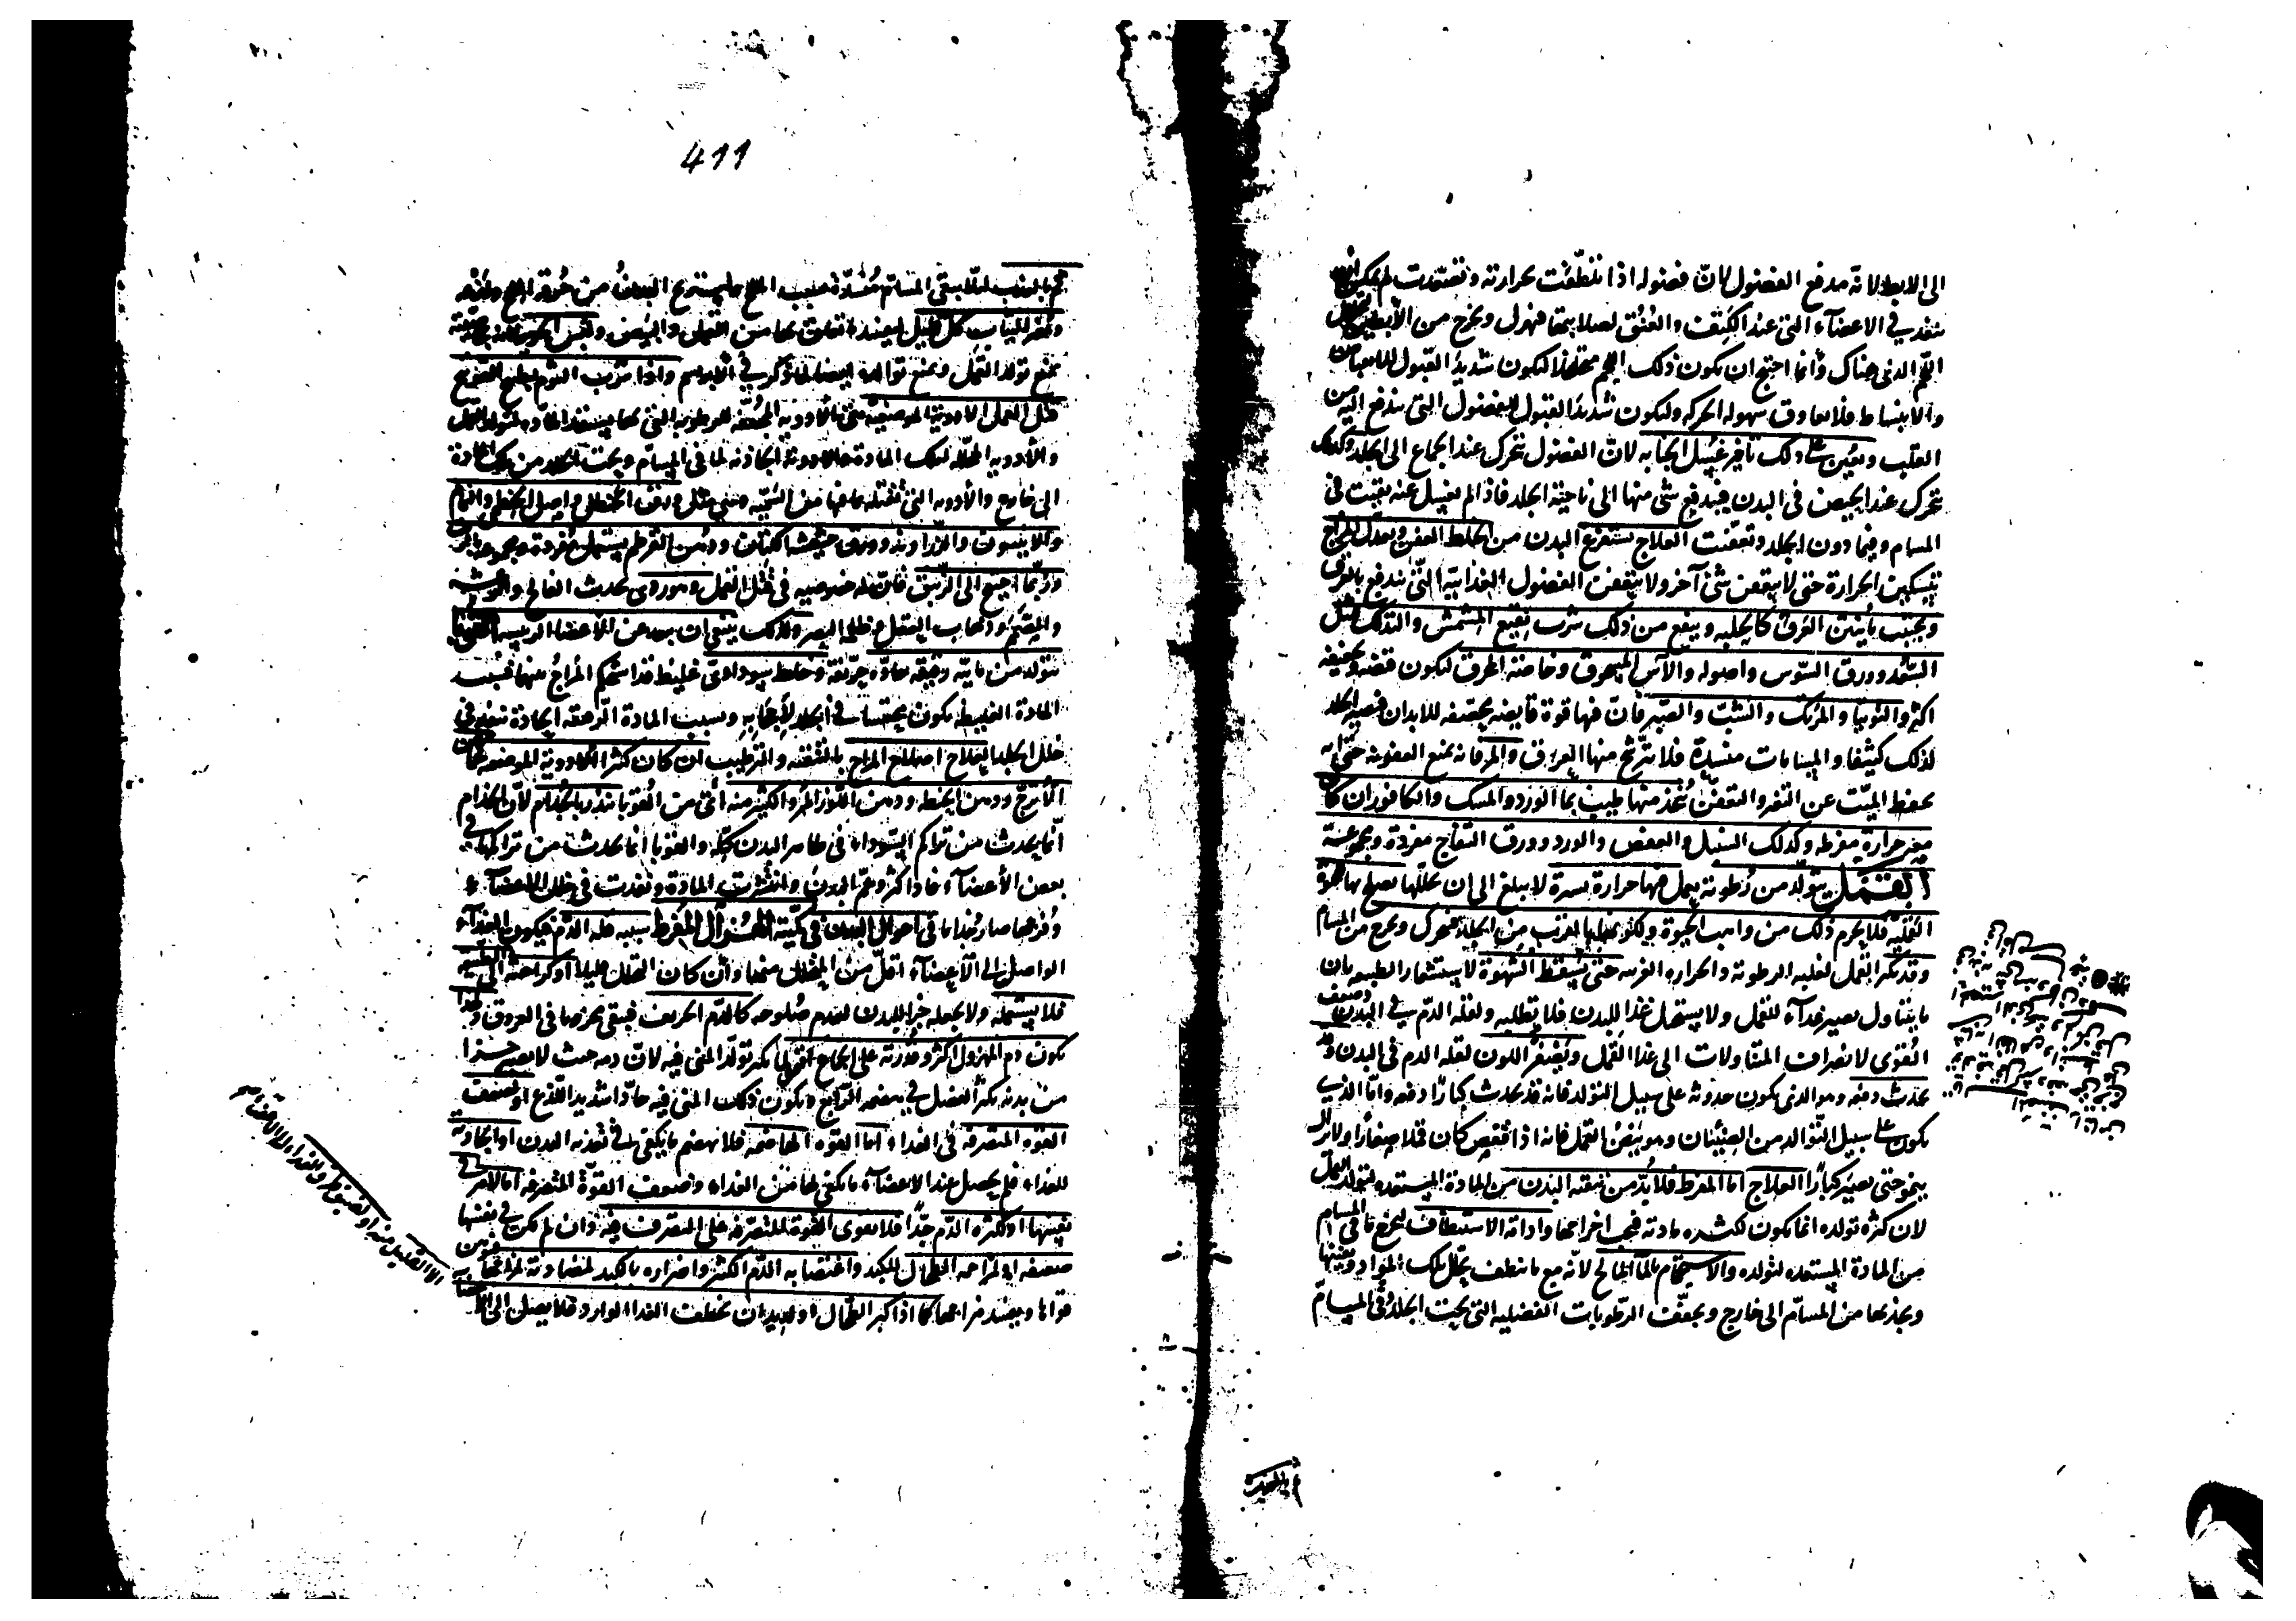 الى الابط لانه مدفع الفضول لان فضوله اذا تلطفت بحرارته وتصعدت لم يمكن ان
تنفد في الاعضآء التي عند الكتف والعنق لصلابتها فنزل وتخرج من الأبطين
اللحم الذي هناك وانما احتيج ان يكون ذلك اللحم متخلخلا ليكون شديد القبول للانقباض
والانبساط فلا يعاوق سهولة الحركة وليكون شديد القبول للفضول التي تندفع اليه من
القلب ويعين على ذلك تاخير غسل الجنابه لان الفضول تتحرك عند الجماع الى الجلد وكذلك
تتحرك عند الحيض في البدن فيندفع شئ منها الى ناحية الجلد فاذا لم يغسل عنه بقيت في
المسام وفيما دون الجلد وتعفنت العلاج يستفرغ البدن من الخلط العفن ويعدل المزاج
بتسكين الحرارة حتى لا يتعفن شئ آخر ولا يتعفن الفضول الغذائية التي تندفع بالعرق
ويجتنب ما ينتن العرق كالحلبه وينفع من ذلك شرب نقيع المشمش والتدلك بمثل
السعد وورق السوس واصوله والآس المسحوق وخاصة المحرق ليكون قبضه وتجفيفه
اكثر والتوتيا والمرتك والشب والصبر فان فيها قوة قابضه مجففه للابدان فيصير الجلد
لذلك كثيفا والمسامات منسدة فلا يترشح منها العرق والمر فانه يمنع العفونة حتى انه
يحفظ الميت عن التغير والتعفن يتخذ منها طيب بماء الورد والمسك والكافور ان كان
بغير حرارة مفرطه وكذلك السنبل والعفص والورد وورق التفاح مفردة ومجموعة
القمل يتولد من رطوبة يعمل فيها حرارة يسيرة لا يبلغ الى ان يحللها يصلح بها لحيوة
القمليه فلا يحرم ذلك من واهب الحيوة ويكون تولدها بالقرب من الجلد فيتحرك ويخرج من المسام
وقد يكثر القمل لغلبه الرطوبة والحرارة الغريبه حتى يسقط الشهوة لاستشعار الطبيعه بان
ما يتناول يصير غذآء للقمل ولا يستحيل غذا للبدن فلا يطلبه ولقلة الدم في البدن وضعف
القوى لانصراف المتناولات الى غذا القمل ويصفر اللون لقله الدم في البدن وقد
يحدث دفعه وهو الذي يكون حدوثه على سبيل التولد فانه قد يحدث كبارا دفعه واما الذي
يكون على سبيل التوالد من الصئبان وهو بيض القمل فانه اذا فقص كان قملا صغارا ولا يزال
ينمو حتى يصير كبارا العلاج اما المفرط فلا بد من تنقية البدن من المادة المستعده لتولد القمل
لان كثرة تولده انما يكون لكثره مادته فيجب اخراجها وادامة الاستنظاف ليخرج ما في المسام
من المادة المستعده لتولده والاستحمام بالمآ المالح لانه مع ما ينظف يحلل تلك المواد ويفنيها
ويجذبها من المسام الى خارج ويجفف الرطوبات الفضليه التي تحت الجلد وفي المسام
411
ثم بالعذب لئلا يبقى المسام منسدة بسبب الملح وليستريح البدن من حرقة الملح
وتغير الثياب كل قليل ليبعد ما تعلق بها من القمل والبيض ولبس الحرير فانه بخاصيته
يمنع تولد القمل ويمنع توالده ايضا لما ذكر في الابريسم واذا شرب الثوم بطبيخ الفوتنج
قتل القمل الادوية الموضعيه هي الأدويه المجففه للرطوبه التي بها يستعد المادة لتولد القمل
والأدويه المحلله لتلك المادة والادوية الجاذبه لما في المسام وتحت الجلد من تلك المادة
الى خارج والأدويه التي تقتله بما فيها من السميه وهي مثل ورق الحنظل واصل الخطمي
والانيسون والزراوند وورق حشيشة الكتان ودهن القرطم يستعمل مفردة ومجموعة
وربما احتيج الى الزيبق فان له خصوصيه في قتل القمل وهو ردى يحدث الفالج والرعشه
والصمم وذهاب العقل وظلمة البصر ولذلك ينبغي ان يبعد عن الأعضا الرئيسه القوبا
يتولد من مائيه رقيقه حادة حريفة وخلط سوداوي غليظ قد استحكم المزاج بينهما فبسبب
المادة الغليظه يكون محتبسا في الجلد لا يجاوزه وبسبب المادة الرقيقه الحادة ينفد في
خلل الجلد العلاج اصلاح المزاج بالتنقيه والترطيب ان كان كثيرا الادويه الموضعيه حماض
الأترج ودهن الحنطه ودهن اللوز المر والكثير منه اعنى من القوبا ينذر بالجذام لان الجذام
انما يحدث من تراكم السودا في ظاهر البدن كله والقوبا انما يحدث من تراكمها في
بعض الأعضآء فاذا كثر وعم البدن وانتشرت المادة ونفدت في خلل الاعضآء
وفرجها صار جذاما في احوال البدن في كميته الهزال المفرط سببه قله الدم فيكون الغذآء
الواصل الى الأعضآء اقل من المتحلل منها وان كان التحلل قليلا او كراهته الطبيعه
فلا يستعمله ولا يجعله جزا للبدن لعدم صلوحه كالدم الحريف فيبقى محرصا في العروق وكذا
يكون دم المهزول اكثر وقدرته على الجماع اقوى لما يكثر تولد المنى فيه لان دمه حيث لا يصير جزا
من بدنه يكثر الفضل في هضمه الرابع ويكون ذلك المنى فيه حادا شديد اللذع او لضعف
القوه المتصرفه في الغذاء اما القوه الهاضمه فلا تهضم ما يكفي في تغذيه البدن او الجاذبه
للغذاء فلم يحصل عند الاعضآء ما يكفي لها من الغذاء وضعف القوة المتصرفه اما لامر في
نفسها او لكثرة الدم جدا فلا تقوى القوة المتصرفه على التصرف فيه وان لم تكن في نفسها
ضعيفه او لمزاحمه الطحال للكبد واغتصابه الدم الكثير واضراره بالكبد لمضادته لمزاجها
قواها ويفسد مزاجها كما اذا كبر الطحال او للديدان تخطف الغذا الوارد فلا يصل الى
الا القليل منه او لضيق طرق الغذاء